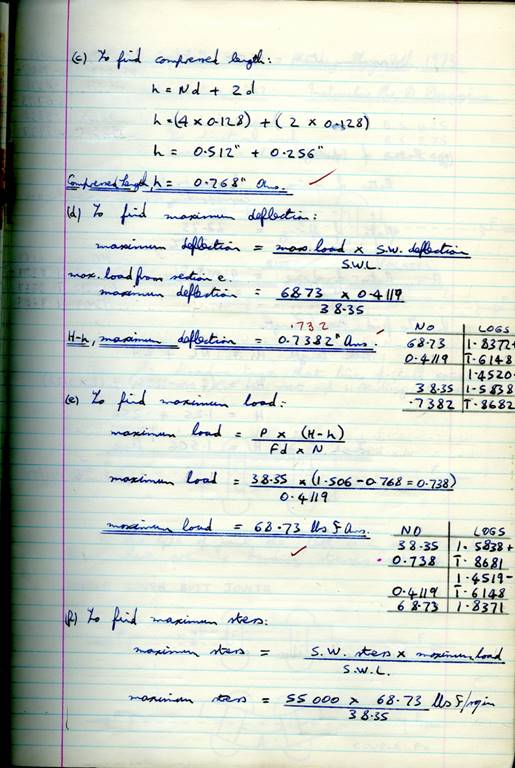 (c) To find compressed length:
h = Nd + 2d
h = (4 x 0.128) + ( 2 x 0.128)
h = 0.512" + 0.256"
Compressed length, h = 0.768" Ans.
(d) To find maximum deflection:
maximum deflection = max. load x S.W. deflection
S.W.L.
max. load from section e.
maximum deflection = 68.73 x 0.4119
38.35
.732
H-h, maximum deflection = 0.7382" Ans.
NO LOGS
68.73 1.8372+
0.4119 T.6148
1.4520-
38.35 1.5838
.7382 T.8682
(e) To find maximum load:
maximum load = P x (H-h)
Fd x N
maximum load = 38.35 x (1.506 - 0.768 = 0.738)
0.4119
maximum load = 68.73 lbs f Ans.
NO LOGS
38.35 1.5838+
0.738 T.8681
1.4519-
0.4119 T.6148
68.73 1.8371
(f) To find maximum stess:
maximum stess = S.W. stess x maximum load
S.W.L.
maximum stess = 55000 x 68.73 lbs f/sq in
38.35